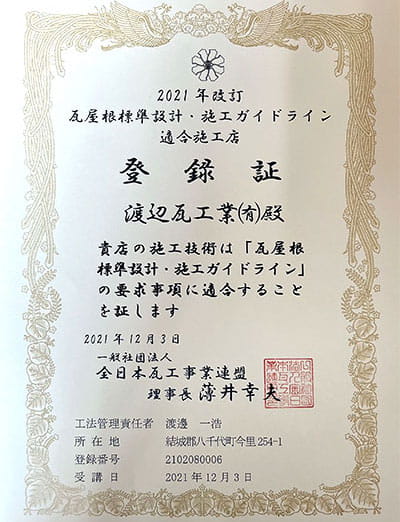 2021年改訂
瓦屋根標準設計・施工ガイドライン
適合施工店
登録証
渡辺瓦工業㈲殿
貴店の施工技術は「瓦屋根
標準設計・施工ガイドライン」
の要求事項に適合すること
を証します
2021年12月3日
一般社団法人
全日本瓦工事業連盟
理事長 薄井幸夫
工法管理責任者 渡邊 一浩
所在地 結城郡八千代町今里254-1
登録番号 2102080006
受講日 2021年12月3日